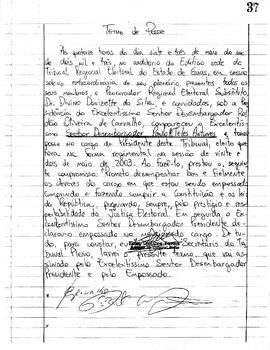 37
Termo de Posse
Às quatorze horas do dia vinte e três de maio do ano
de dois mil e três, no auditório do Edifício sede do
Tribunal Regional Eleitoral do Estado de Goiás, em sessão
extraordinária de seu plenário, presentes todos os
seus membros, o Procurador Regional Eleitoral Substituto,
Dr. Divino Donizette da Silva, e convidados, sob a Pre-
sidência do Excelentíssimo Senhor Desembargador Rol-
dão Oliveira de Carvalho, compareceu o Excelentís-
simo Senhor Desembargador Teles Antunes e tomou
posse no cargo de Presidente deste Tribunal, eleito que
fora na forma regimental na sessão de vinte e
de maio de 2003. Ao fazê-lo, prestou o se-
guinte compromisso: "Prometo desempenhar bem e fielmente
os deveres do cargo em que estou sendo empossado,
cumprindo e fazendo cumprir a Constituição e as leis
da República, pugnando, sempre, pelo prestígio e res-
peitabilidade da Justiça Eleitoral. Em seguida o Ex-
celentíssimo Senhor Desembargador Presidente de-
clarou empossado no cargo. De tu-
do, para constar, eu Secretário do Tri-
bunal Pleno, lavrei o presente termo, que vai as-
sinado pelo Excelentíssimo Senhor Desembargador
Presidente e pelo Empossado.